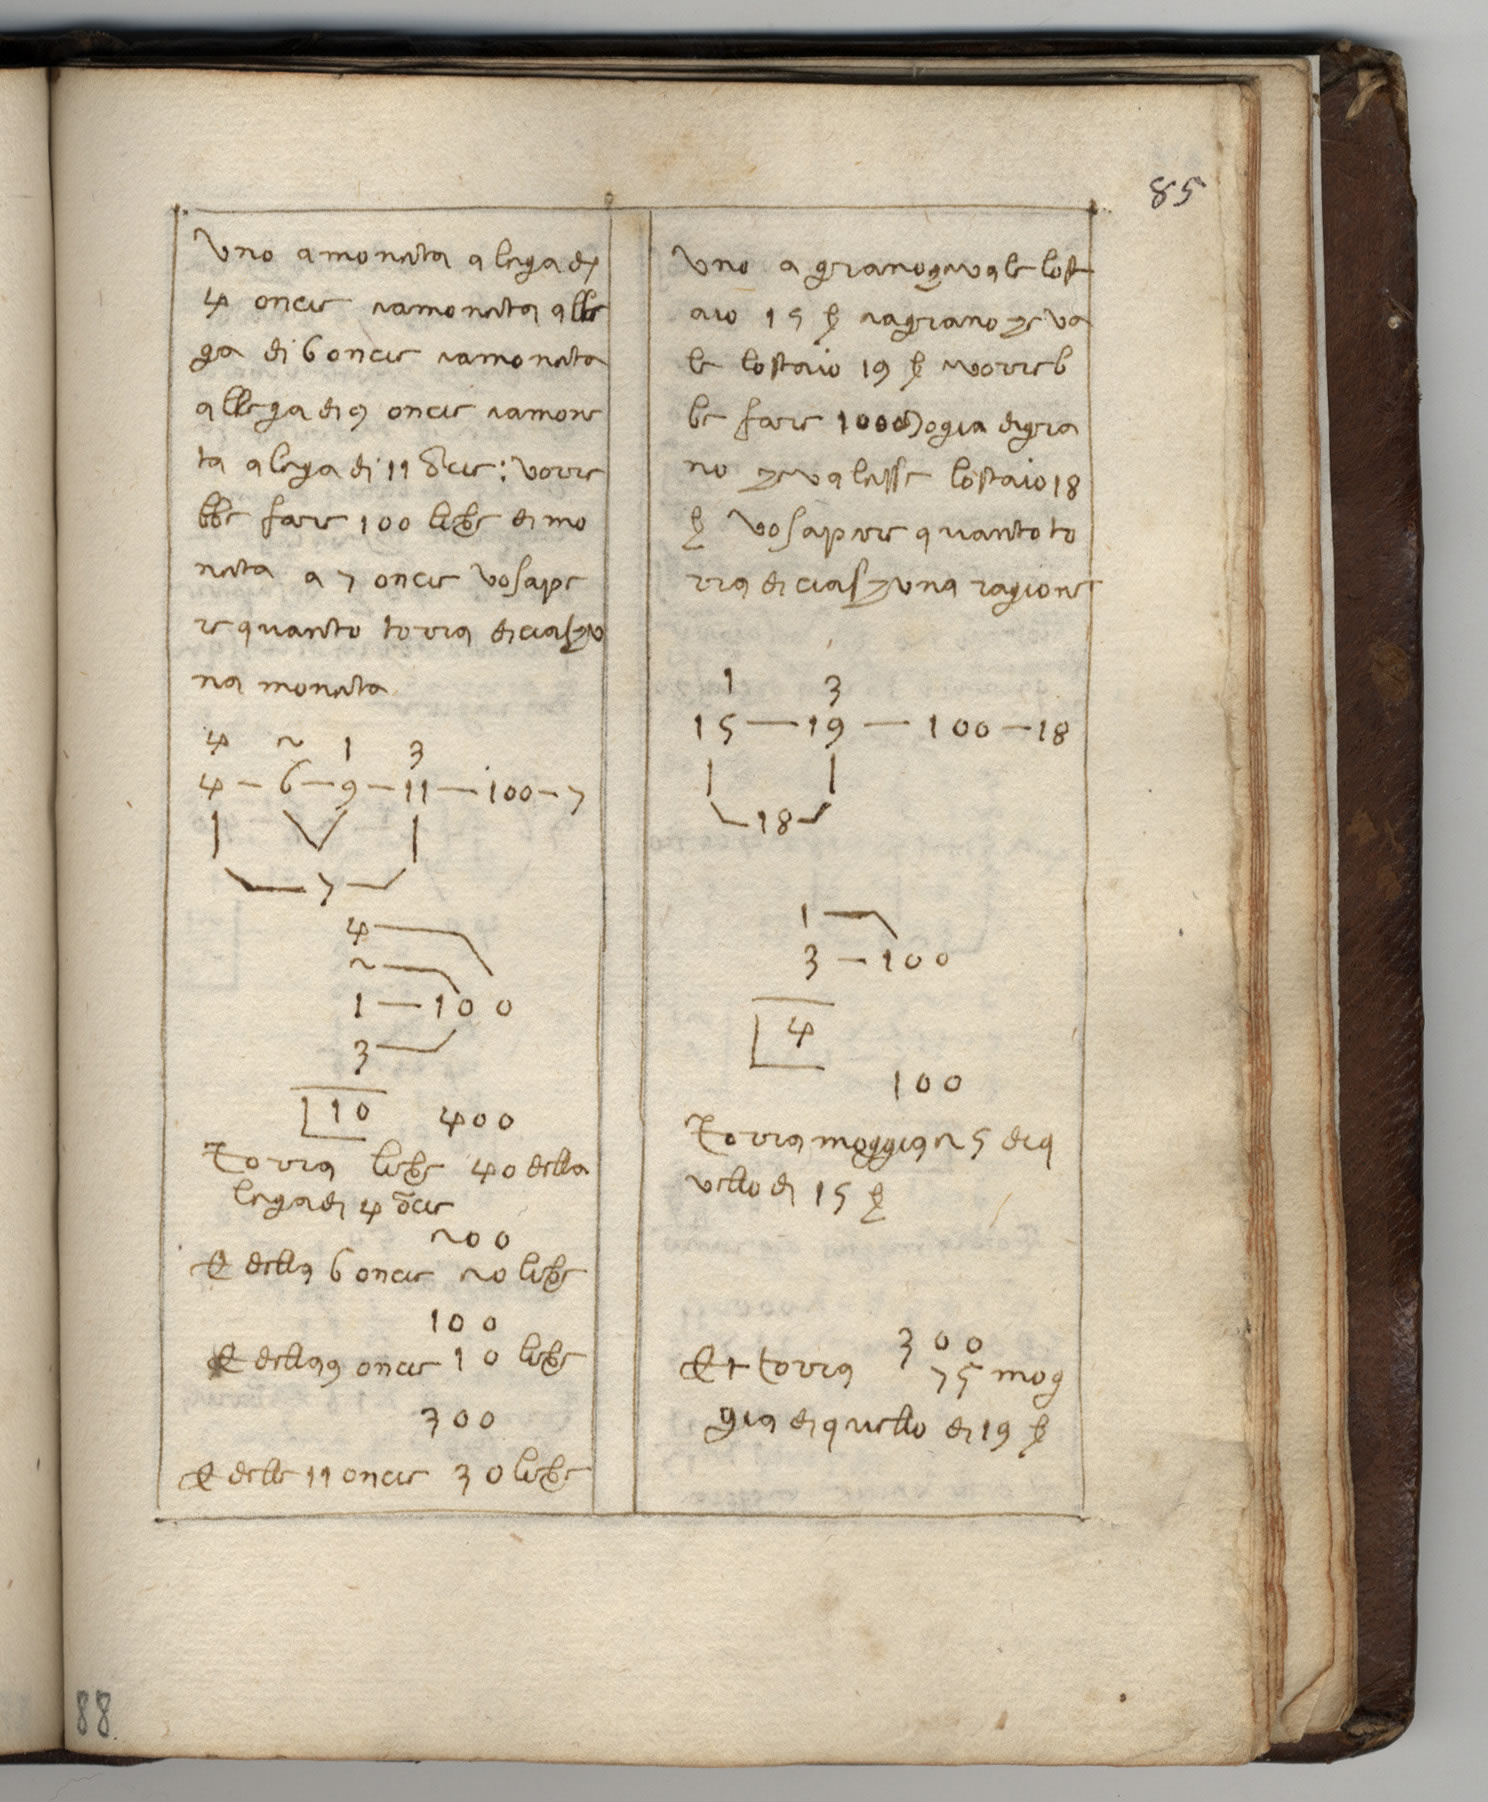 85
Uno a moneta a lega di
4 oncie ea moneta alle
ga di 6 oncie ea moneta
allega di 9 oncie ea mone
ta a lega di 11 õcie: vorre
bbe fare 100 libre di mo
neta a 7 oncie vo sape
re quanto torra di ciaschu
na moneta
4 2 1 3
4 — 6 — 9 — 11 — 100 — 7
7
4
2
1 — 100
3
10 400
Torra libre 40 della
lega di 4 õcie
200
E della 6 oncie 20 libre
100
E della 9 oncie 10 libre
300
E delle 11 oncie 30 libre
Uno a grano che vale lost
aio 15 ea grano che va
le lostaio 19 vorreb
be fare 100 mogia di gra
no che valesse lostaio 18
vo sapere quanto to
rra di ciaschuna ragione
1 3
15 — 19 — 100 — 18
18
1
3 — 100
4
100
Torra moggia 25 di q
uello di 15
300
Et torra 75 mog
gia di quello di 19
88